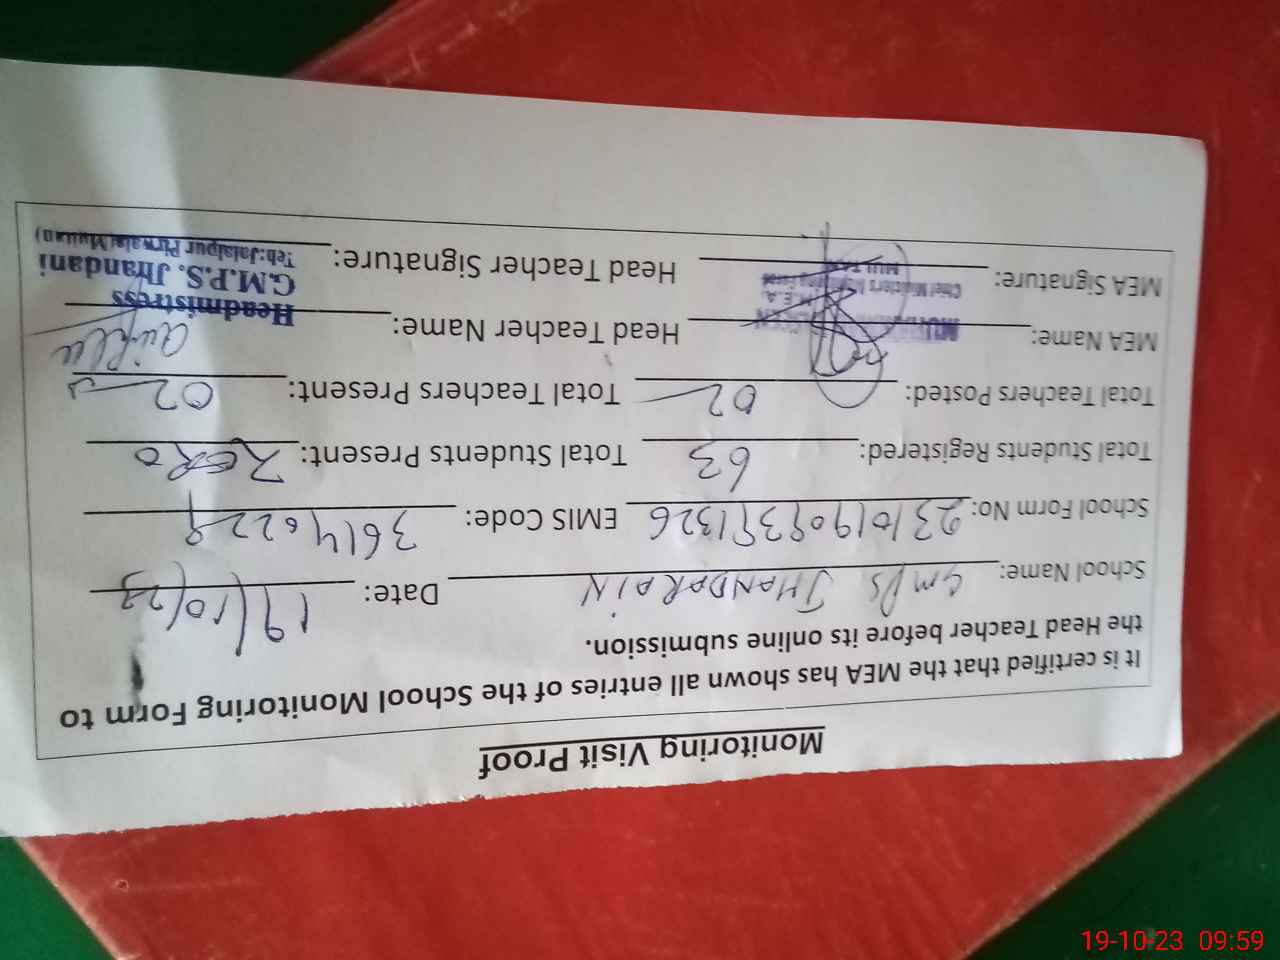 Monitoring Visit Proof
It is certified that the MEA has shown all entries of the School Monitoring Form to
the Head Teacher before its online submission.
School Name: GMPS JHANDARAIN Date: 19/10/23
School Form No: 23101909391326 EMIS Code: 36140229
Total Students Registered: 63 Total Students Present: ZERO
Total Teachers Posted: 02 Total Teachers Present: 02
MEA Name: Head Teacher Name:
MEA Signature: Head Teacher Signature:
M.E.A.
Chief Minister's Monitoring Force
MULTAN
Headmistress
G.M.P.S. Jhandani
Teh: Jalalpur Pirwala (Multan)
19-10-23 09:59